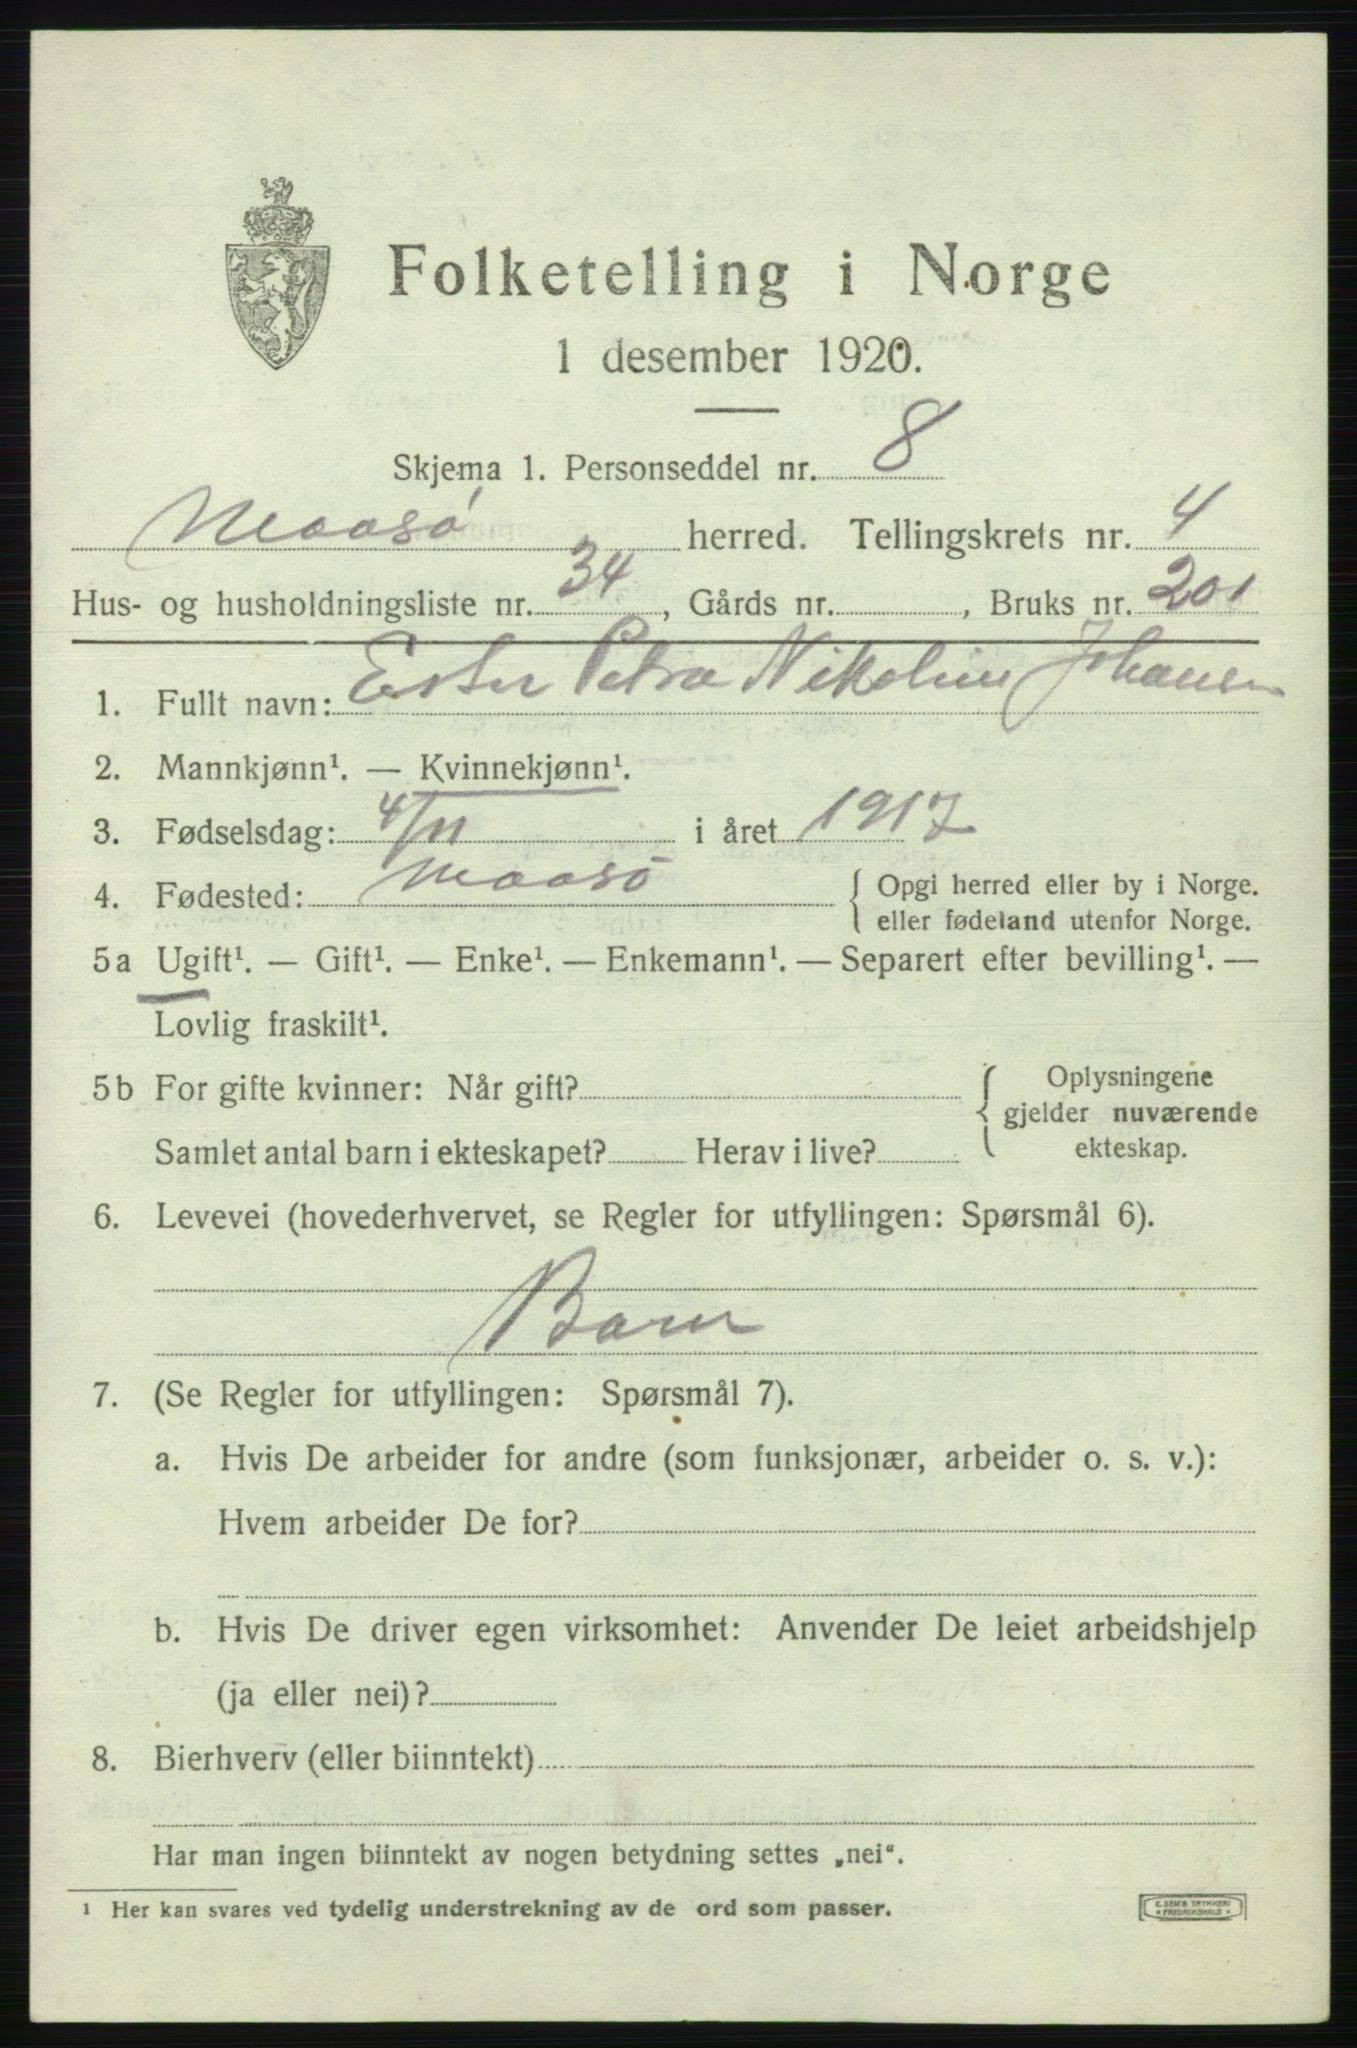 Folketelling i Norge
1 desember 1920.
Skjema 1. Personseddel nr. 8
Maasø herred. Tellingskrets nr. 4
Hus- og husholdningsliste nr. 34, Gårds nr. , Bruks nr. 201
1. Fullt navn: Ester Petra Nikoline Johansen
2. Mannkjønn¹. — Kvinnekjønn¹.
3. Fødselsdag: 4/11 i året 1917
4. Fødested: Maasø { Opgi herred eller by i Norge.
eller fødeland utenfor Norge.
5a Ugift¹. — Gift¹. — Enke¹. — Enkemann¹. — Separert efter bevilling¹. —
Lovlig fraskilt¹.
5b For gifte kvinner: Når gift? { Oplysningene
gjelder nuværende
Samlet antal barn i ekteskapet? Herav i live? ekteskap.
6. Levevei (hovederhvervet, se Regler for utfyllingen: Spørsmål 6).
Barn
7. (Se Regler for utfyllingen: Spørsmål 7).
a. Hvis De arbeider for andre (som funksjonær, arbeider o. s. v.):
Hvem arbeider De for?
b. Hvis De driver egen virksomhet: Anvender De leiet arbeidshjelp
(ja eller nei)?
8. Bierhverv (eller biinntekt)
Har man ingen biinntekt av nogen betydning settes „nei“.
¹ Her kan svares ved tydelig understrekning av de ord som passer.
E. SEM'S TRYKKERI
FREDRIKSHALD